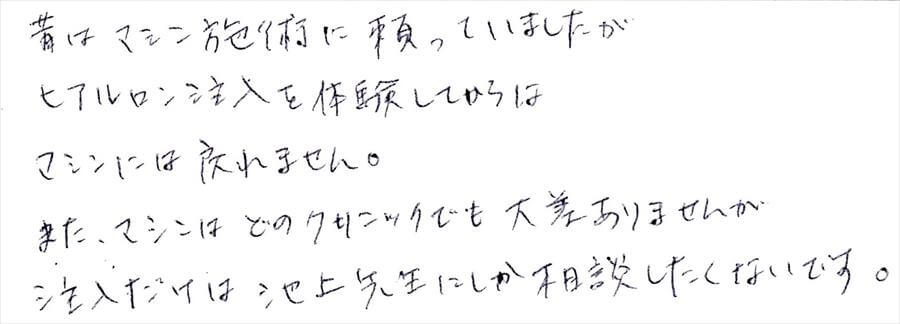 昔は マシン施術に 頼っていましたが
ヒアルロン注入を体験してからは
マシンには戻れません。
また、マシンは どのクリニックでも 大差ありませんが
注入だけは 池上先生にしか相談したくないです。